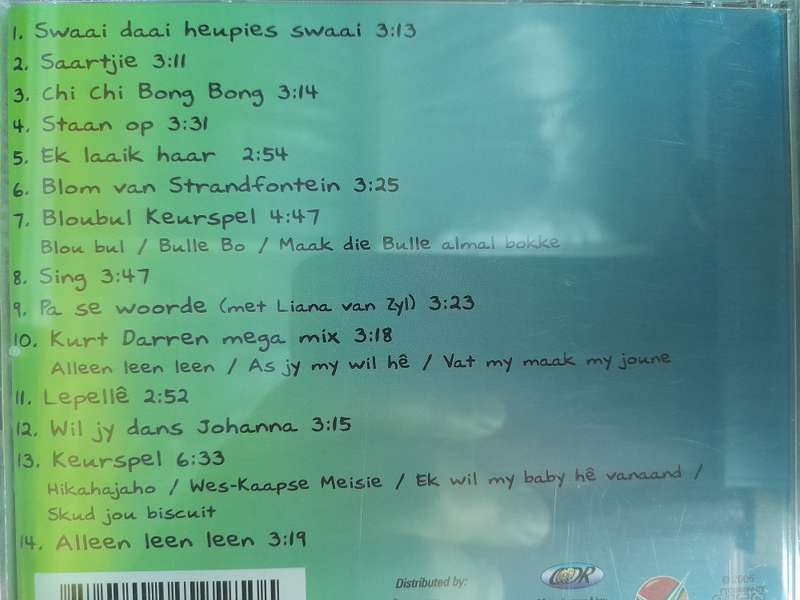 1. Swaai daai heupies swaai 3:13
2. Saartjie 3:11
3. Chi Chi Bong Bong 3:14
4. Staan op 3:31
5. Ek laaik haar 2:54
6. Blom van Strandfontein 3:25
7. Bloubul Keurspel 4:47
Blou bul / Bulle Bo / Maak die Bulle almal bokke
8. Sing 3:47
9. Pa se woorde (met Liana van Zyl) 3:23
10. Kurt Darren mega mix 3:18
Alleen leen leen / As jy my wil hê / Vat my maak my joune
11. Lepellê 2:52
12. Wil jy dans Johanna 3:15
13. Keurspel 6:33
Hikahajaho / Wes-Kaapse Meisie / Ek wil my baby hê vanaand /
Skud jou biscuit
14. Alleen leen leen 3:19
Distributed by: